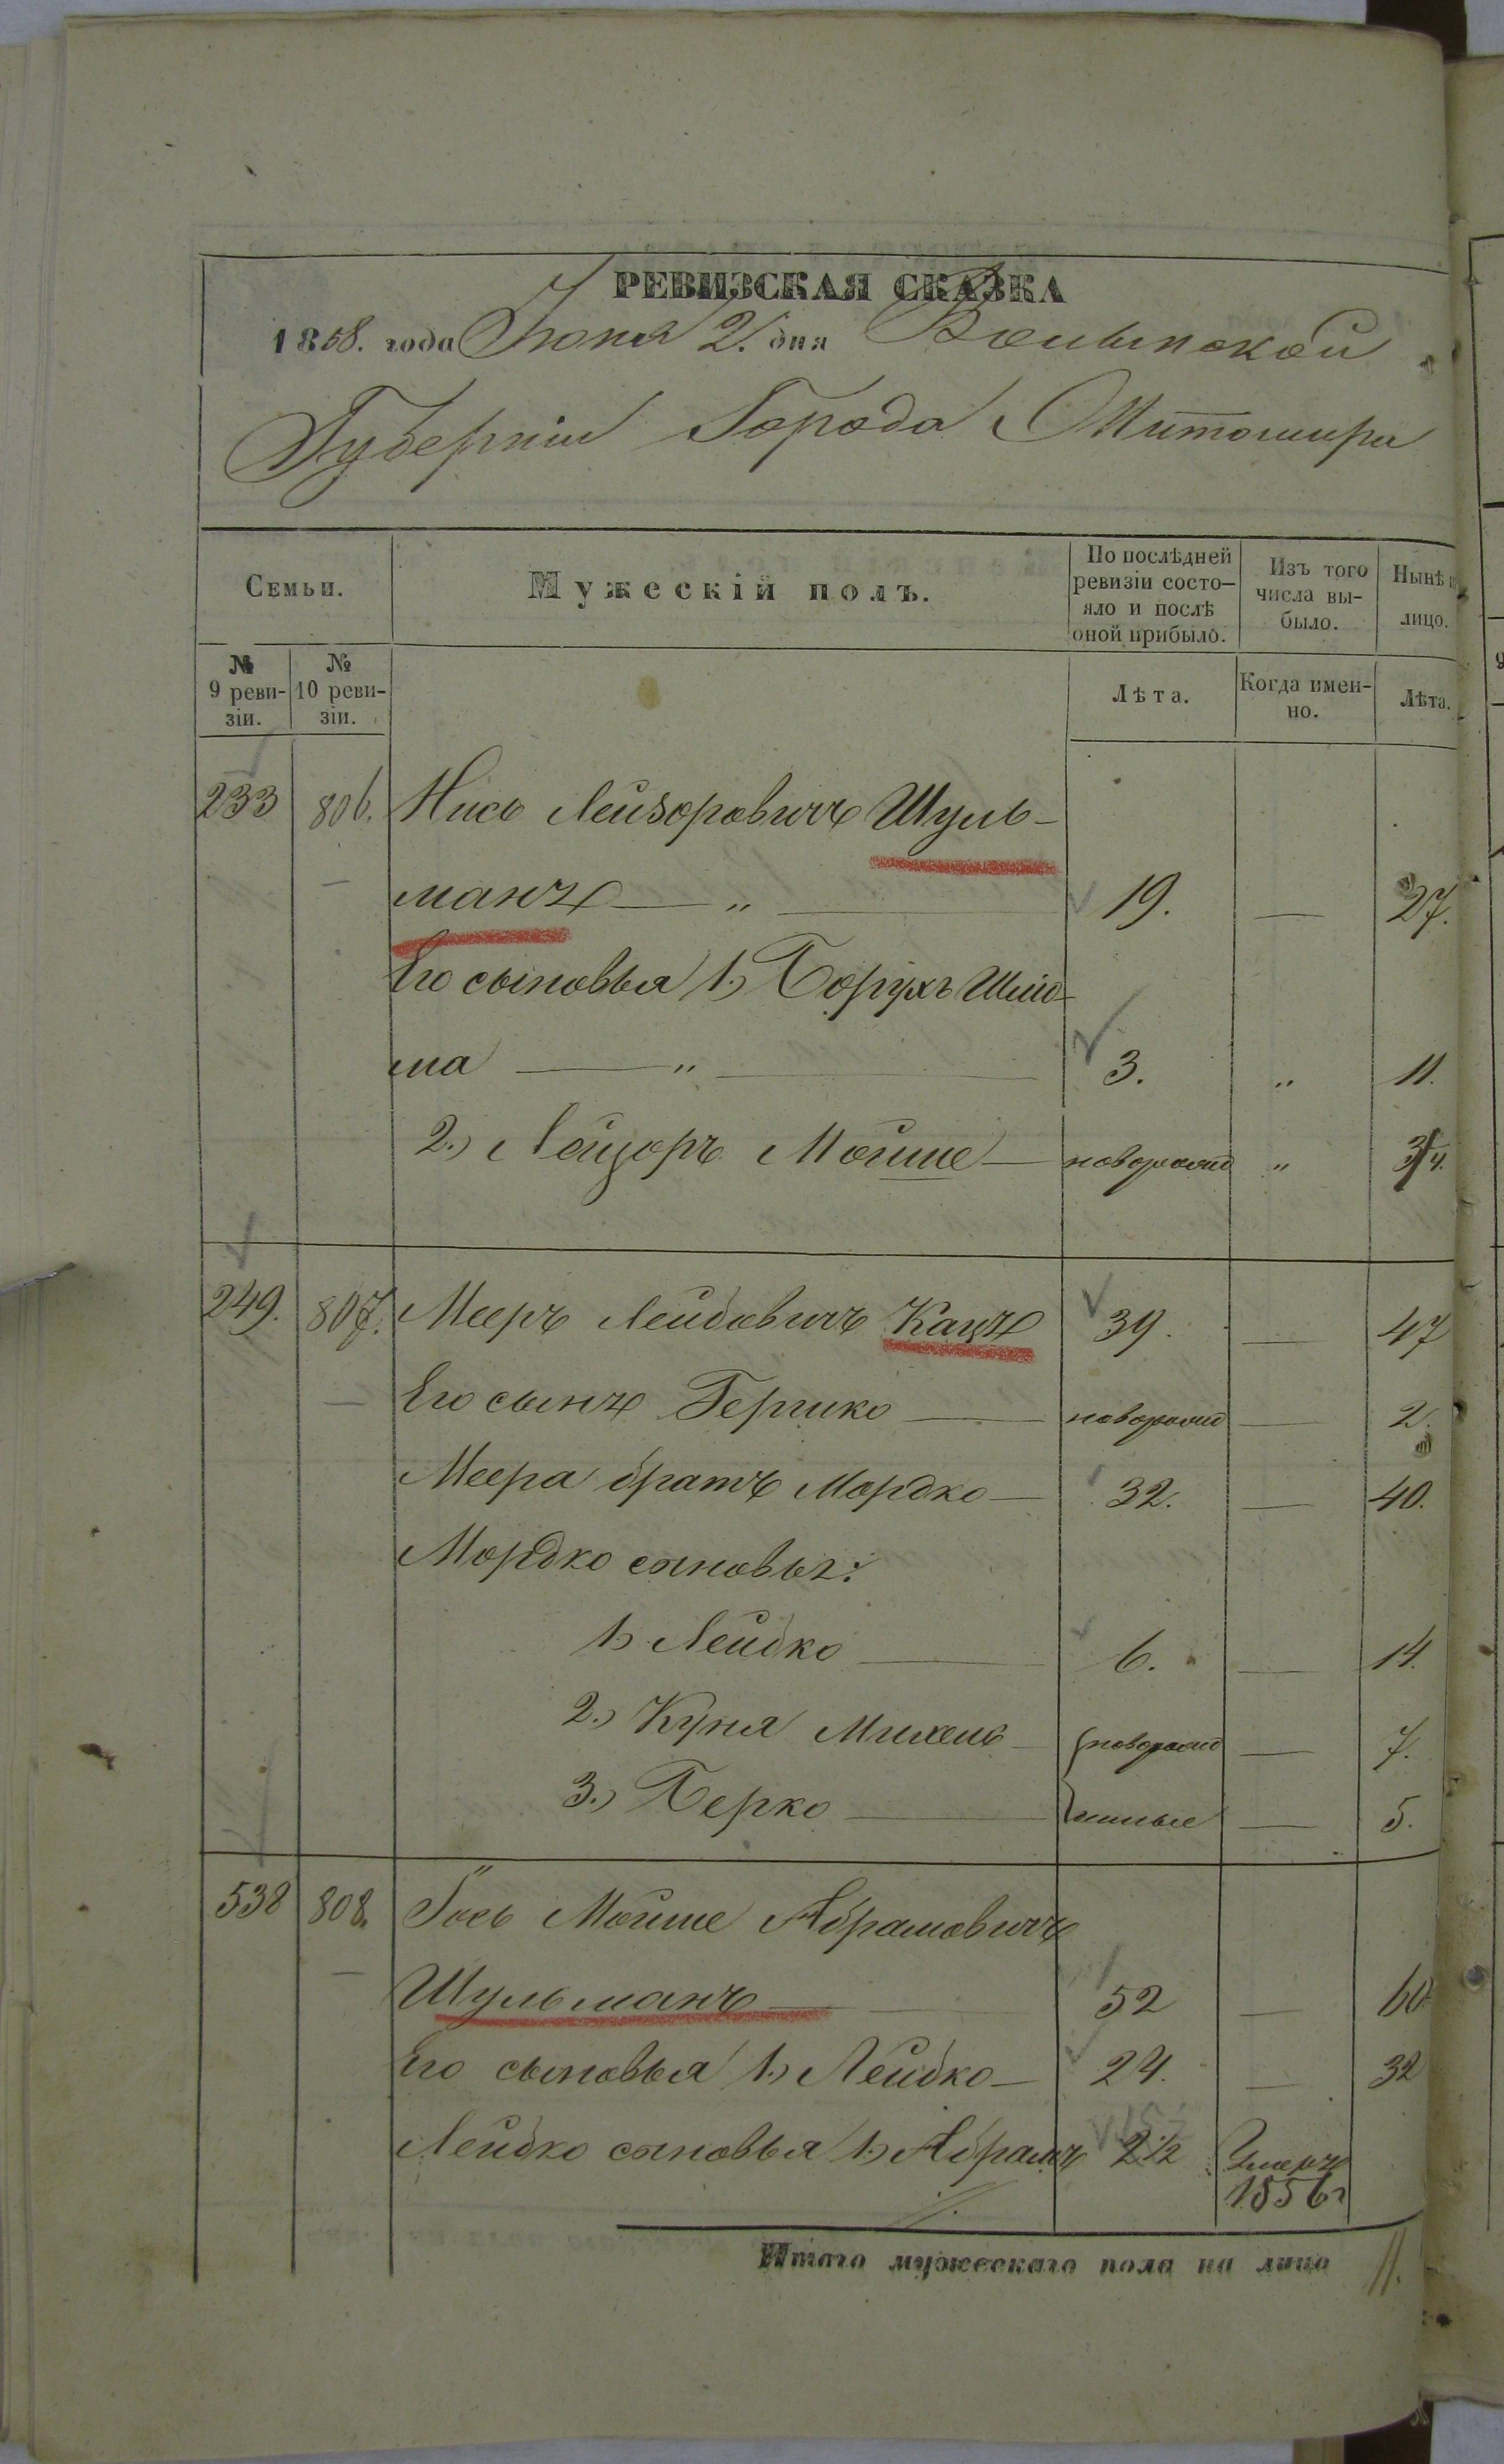 РЕВИЗСКАЯ СКАЗКА
1858. года Іюня 2. дня Волынской
Губерніи Города Житомира
Семьи.
Мужескій полъ.
По послѣдней ревизіи состо-яло и послѣ оной прибыло.
Изъ того числа вы-было.
Нынѣ
лицо.
№ 9 реви-зіи.
№ 10 реви-зіи.
Лѣта.
Когда имен-но.
Лѣта.
233 806. Нись Лейзоровичъ Шуль-
манъ — „ — 19. — 27.
Его сыновья 1.) Борухъ Шлio-
ма — „ — 3. „ 11.
2.) Лейзоръ Мойше — новорожд „ 3/4.
249. 807. Мееръ Лейбовичъ Кацъ 39. — 47
Его сынъ Гершко — новорожд — 2.
Меера братъ Мордко — 32. — 40.
Мордко сыновья:
1.) Лейбко — 6. — 14.
2.) Куня Михель — новорожд — 7.
3.) Берко — енные — 5.
538 808. Іось Мойше Абрамовичъ
Шульманъ — 52 — 60
Его сыновья 1.) Лейбко — 24. — 32
Лейбко сыновья 1.) Абрамъ 2 1/2 Умеръ
1856 г
Итого мужескаго пола на лицо 11.